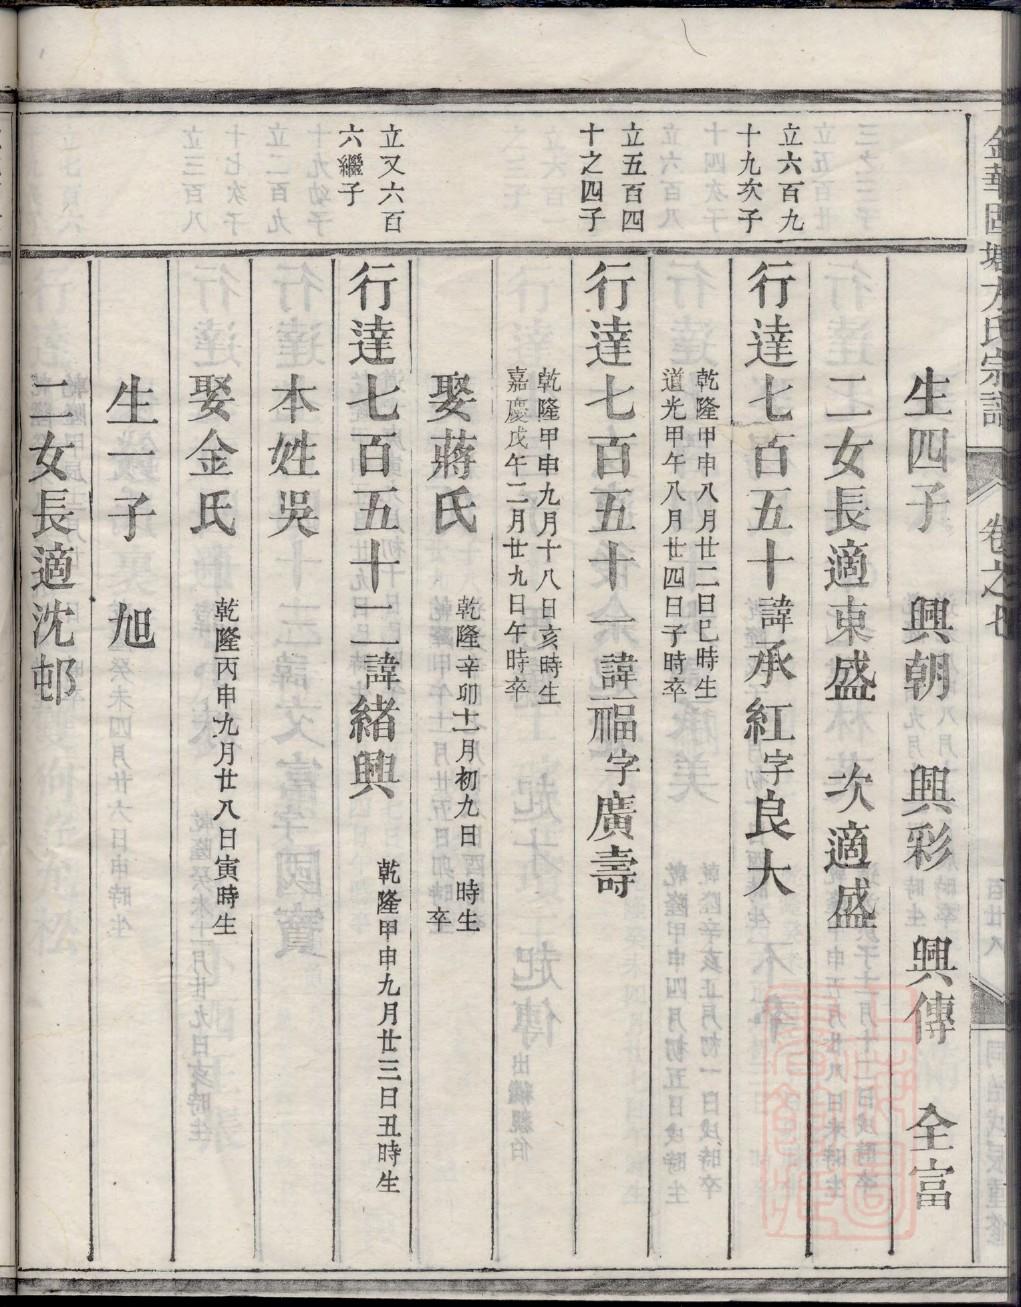 金華固塘方氏宗譜 卷之七
生四子 興朝 興彩 興傳 全富
二女長適東盛 次適盛
立六百九
十九次子
行達七百五十諱承紅字良大
乾隆甲申八月廿二日巳時生
道光甲午八月廿四日子時卒
立五百四
十之四子
行達七百五十一諱福字廣壽
乾隆甲申九月十八日亥時生
嘉慶戊午二月廿九日午時卒
娶蔣氏
乾隆辛卯十一月初九日 時生
卒
立又六百
六繼子
行達七百五十二諱緒興
乾隆甲申九月廿三日丑時生
本姓吳
娶金氏
乾隆丙申九月廿八日寅時生
生一子 旭
二女長適沈邨